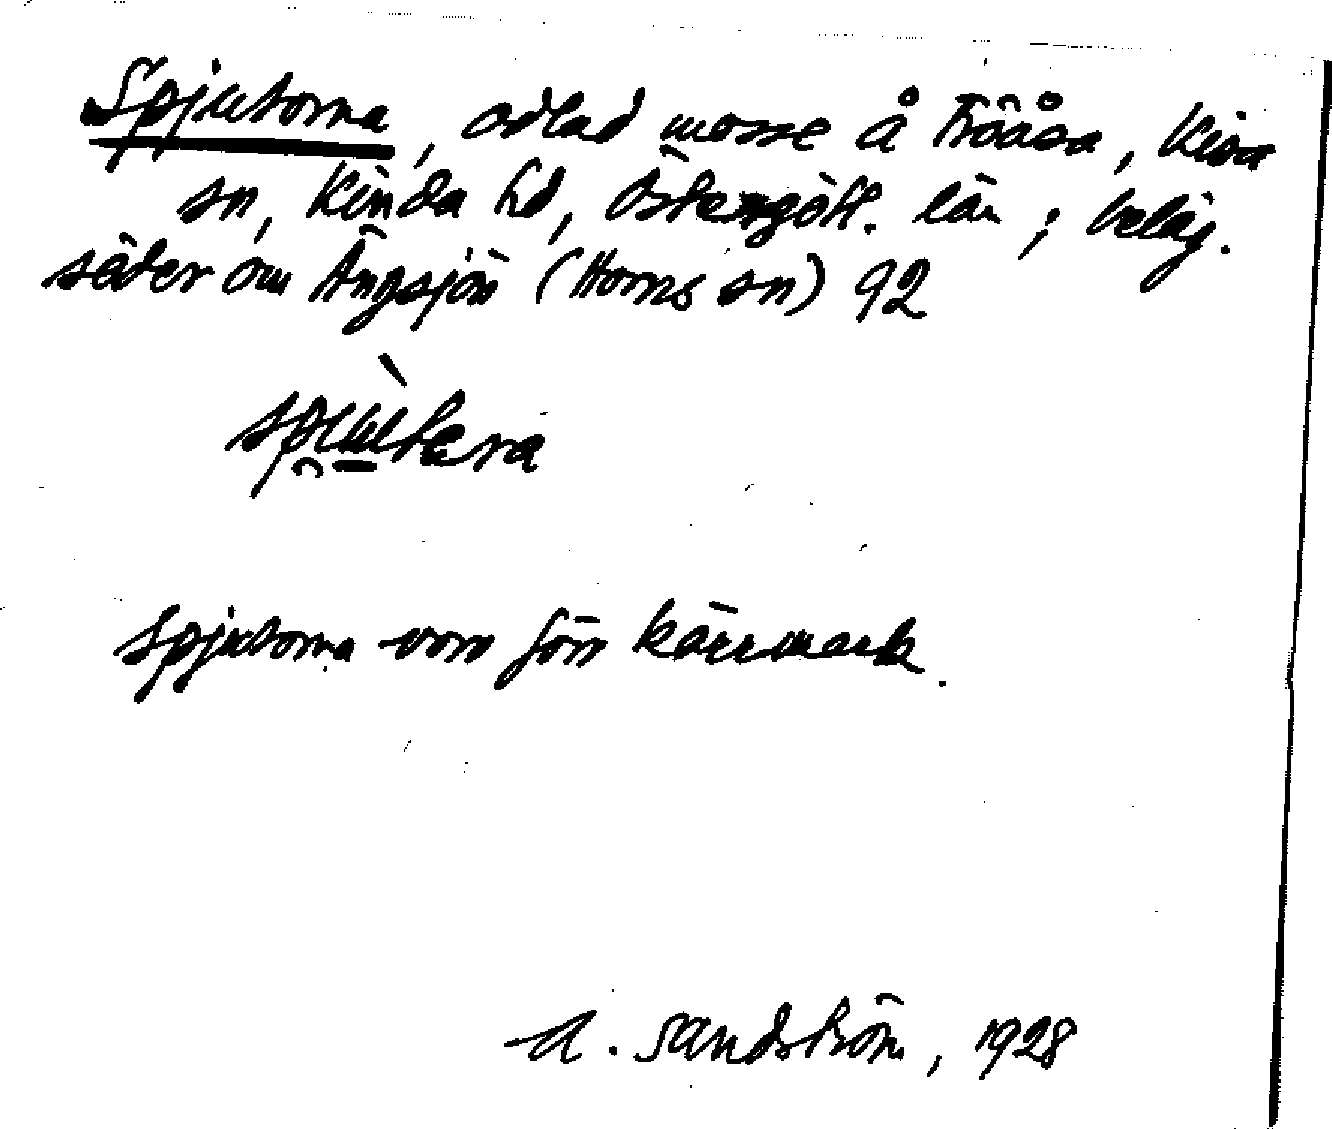 Spjutorna, odlad mosse å Trööåsa, Kisa
sn, Kinda hd, Östergötl. län; beläg.
söder om Ängsjön (Horns sn) 92
Spjutorna voro förr kärrmark.
A. Sandström, 1928